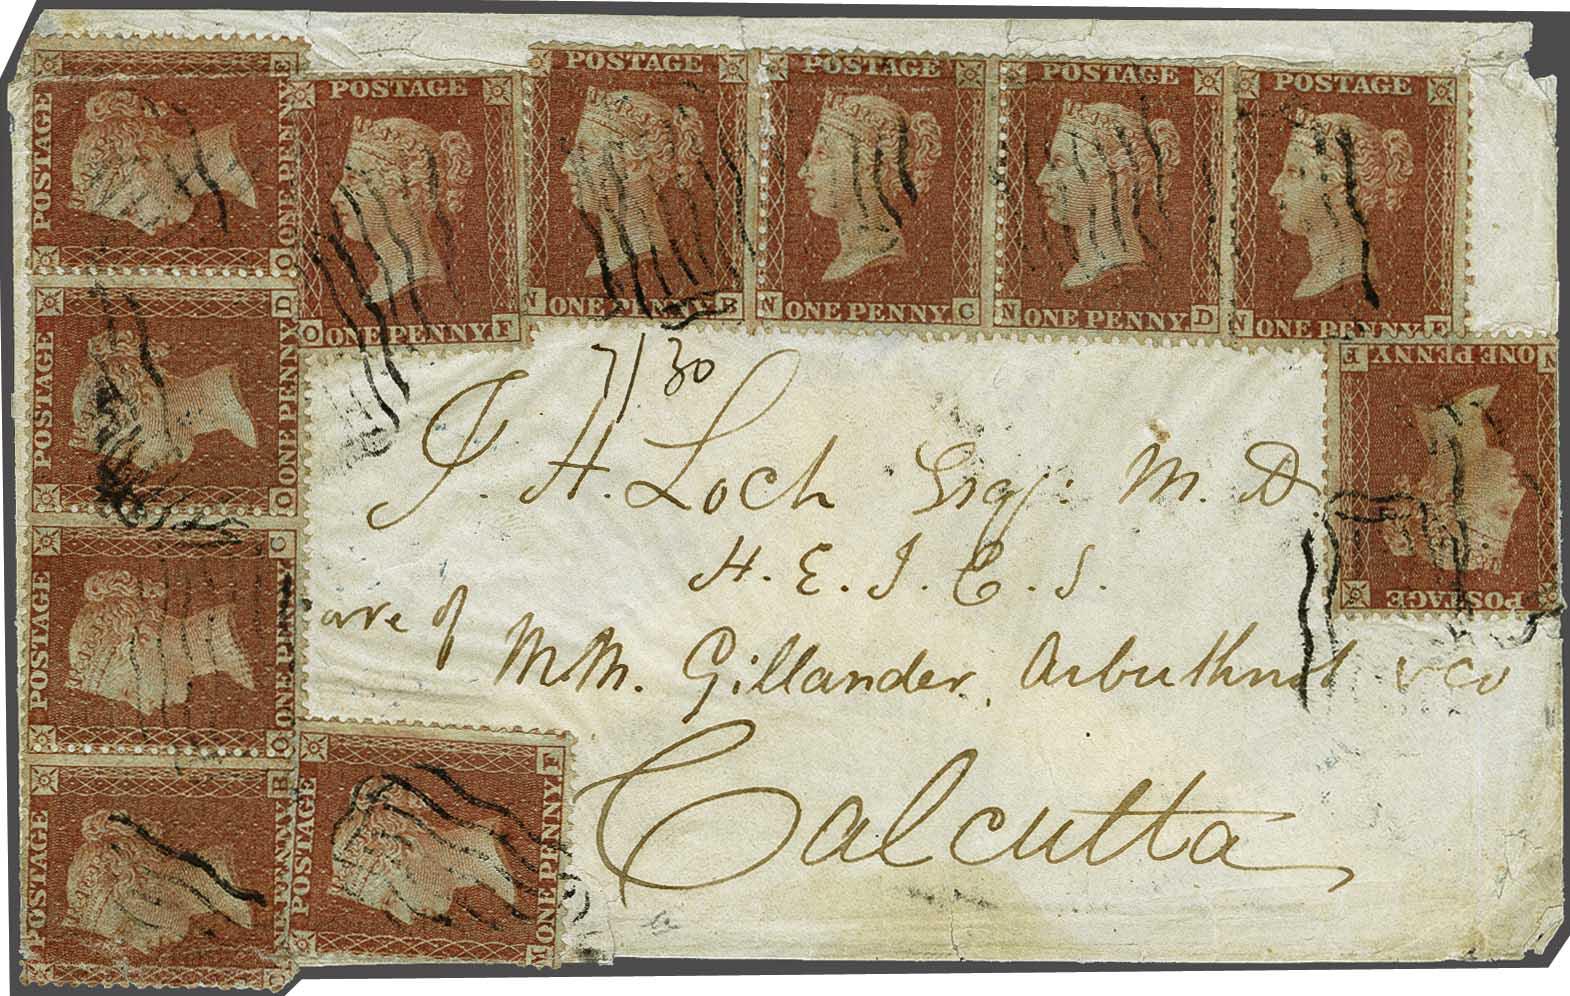 POSTAGE ONE PENNY O E
POSTAGE ONE PENNY O D
POSTAGE ONE PENNY O C
POSTAGE ONE PENNY O B
POSTAGE ONE PENNY O F
POSTAGE ONE PENNY N B
POSTAGE ONE PENNY N C
POSTAGE ONE PENNY N D
POSTAGE ONE PENNY N E
POSTAGE ONE PENNY N F
POSTAGE ONE PENNY M F
7/30
J. H. Loch Esqr: M. D.
H. E. I. C. S.
Care of
MM. Gillander, Arbuthnot & Co
Calcutta